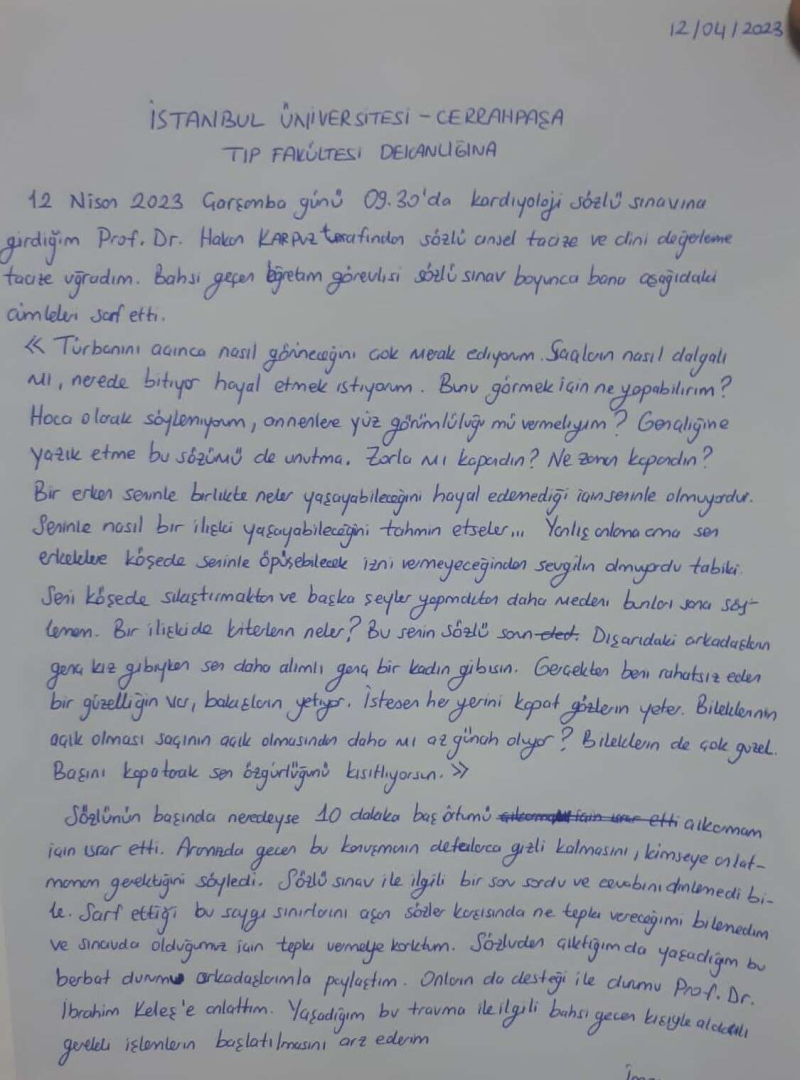 12/04/2023
İSTANBUL ÜNİVERSİTESİ - CERRAHPAŞA
TIP FAKÜLTESİ DEKANLIĞINA
12 Nisan 2023 Çarşamba günü 09.30'da kardiyoloji sözlü sınavına
girdiğim Prof. Dr. Hakan KARPUZ tarafından sözlü cinsel tacize ve dini değerleme
tacize uğradım. Bahsi geçen öğretim görevlisi sözlü sınav boyunca bana aşağıdaki
cümleleri sarf etti.
<< Türbanını açınca nasıl görüneceğini çok merak ediyorum. Saçların nasıl dalgalı
mı, nerede bitiyor hayal etmek istiyorum. Bunu görmek için ne yapabilirim?
Hoca olarak söyleniyorum, annenlere yüz görümlülüğü mü vermeliyim? Gençliğine
yazık etme bu sözümü de unutma. Zorla mı kapandın? Ne zaman kapandın?
Bir erkek seninle birlikte neler yaşayabileceğini hayal edemediği için seninle olmuyordur.
Seninle nasıl bir ilişki yaşayabileceğini tahmin etseler... Yanlış anlama ama sen
erkeklere köşede seninle öpüşebilecek izni vermeyeceğinden sevgilin olmuyordu tabiki.
Seni köşede sıkıştırmaktan ve başka şeyler yapmaktan daha medeni bunları sana söy-
lemem. Bir ilişkide kriterlerin neler? Bu senin sözlü sorun Dışarıdaki arkadaşların
genç kız gibiyken sen daha alımlı genç bir kadın gibisin. Gerçekten beni rahatsız eden
bir güzelliğin var, bakışların yetiyor. İstesen her yerini kapat gözlerin yeter. Bileklerinin
açık olması saçının açık olmasından daha mı az günah oluyor? Bileklerin de çok güzel.
Başını kapatarak sen özgürlüğünü kısıtlıyorsun. >>
Sözlünün başında neredeyse 10 dakika baş örtümü çıkarmam
için ısrar etti. Aramızda geçen bu konuşmanın defalarca gizli kalmasını, kimseye anlat-
mamam gerektiğini söyledi. Sözlü sınav ile ilgili bir soru sordu ve cevabını dinlemedi bi-
le. Sarf ettiği bu saygı sınırlarını aşan sözler karşısında ne tepki vereceğimi bilemedim
ve sınavda olduğumuz için tepki vermeye korktum. Sözlüden çıktığımda yaşadığım bu
berbat durumu arkadaşlarımla paylaştım. Onların da desteği ile durumu Prof. Dr.
İbrahim Keleş'e anlattım. Yaşadığım bu travma ile ilgili bahsi geçen kişiyle alakalı
gerekli işlemlerin başlatılmasını arz ederim